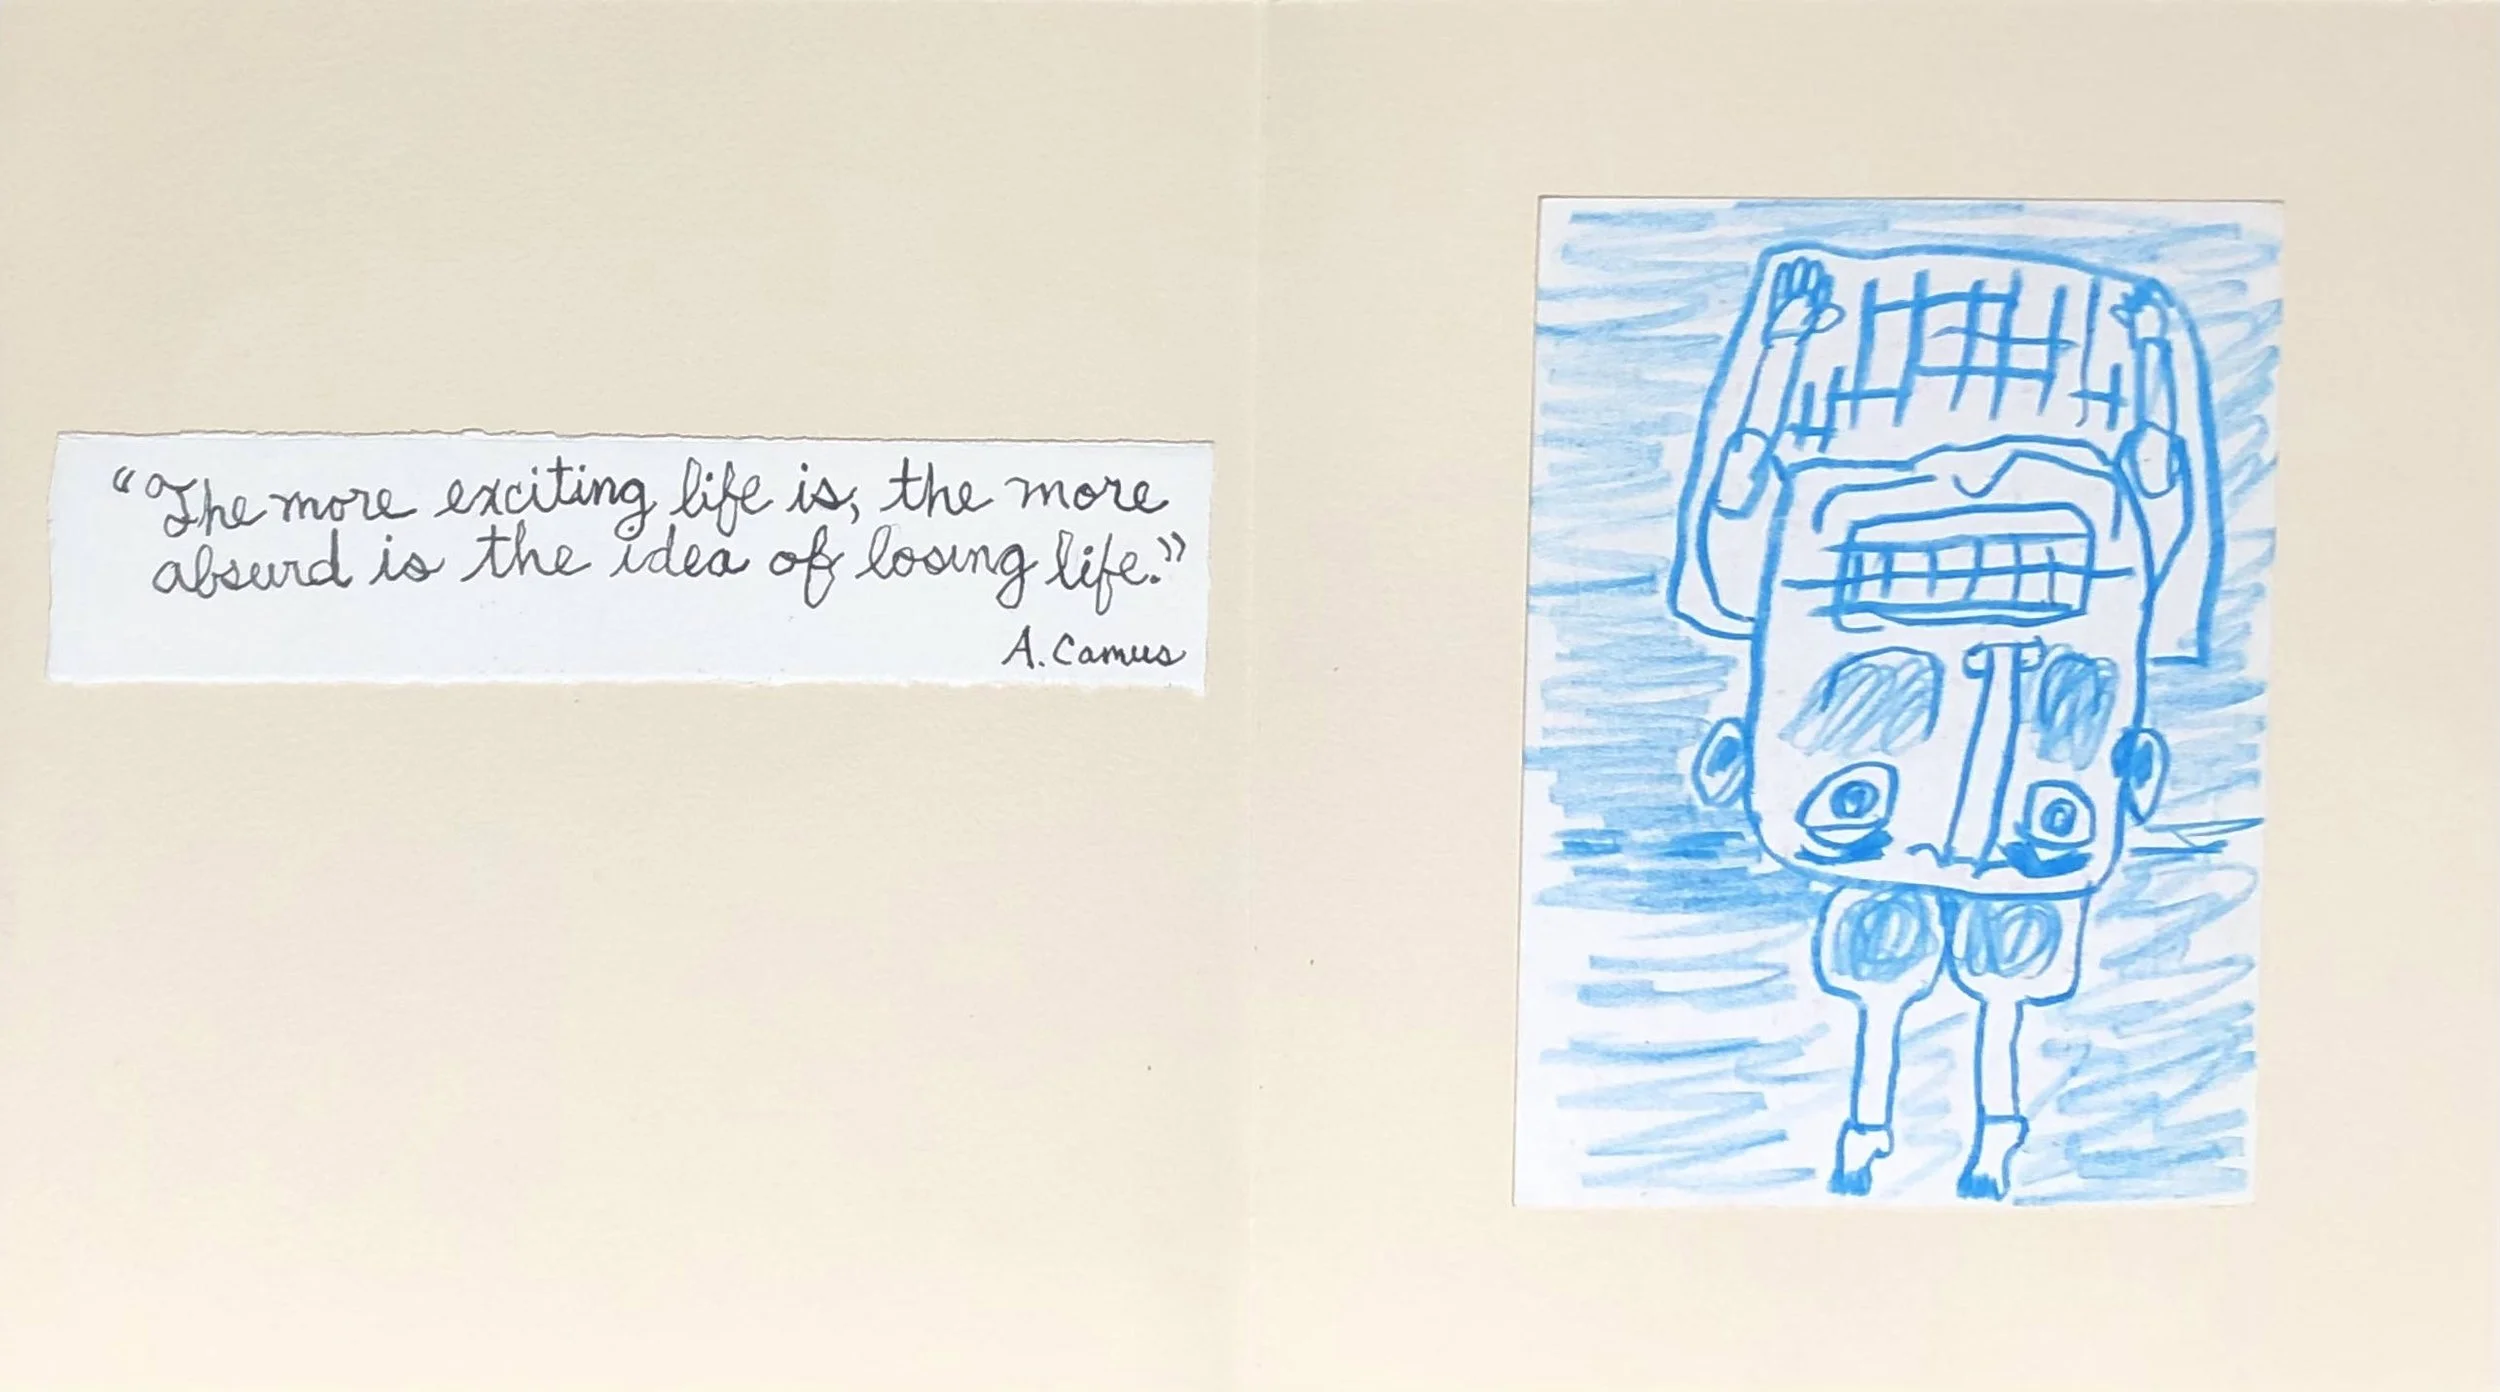 “The more exciting life is, the more
absurd is the idea of losing life.”
A. Camus